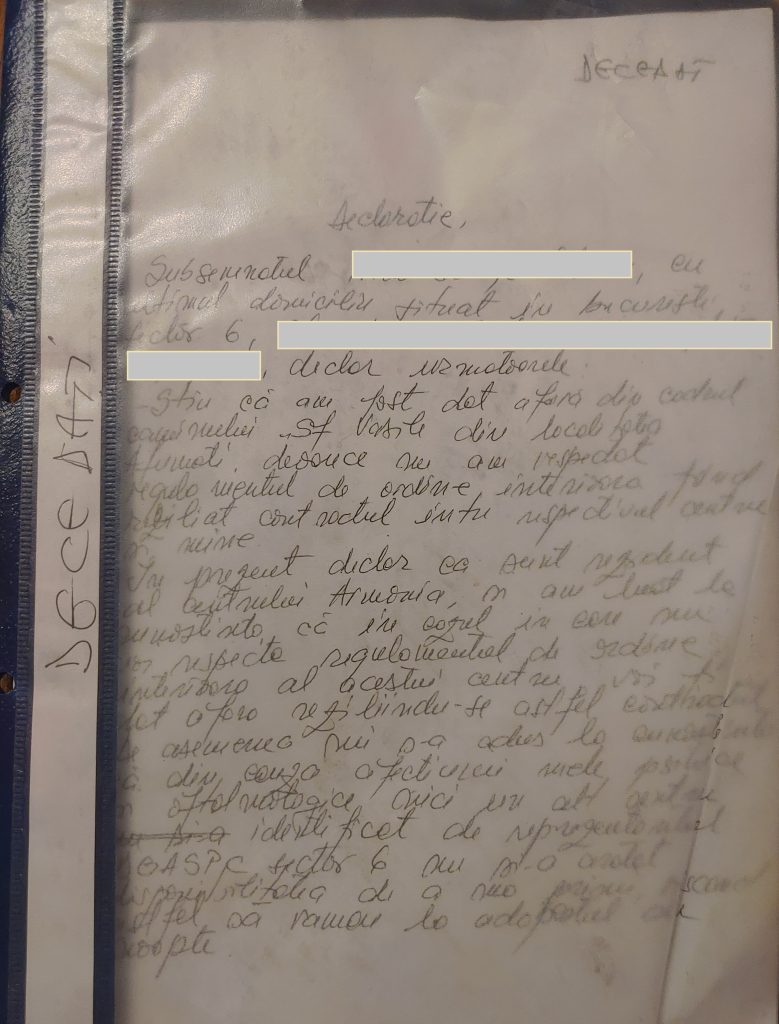 DECEDAȚI
DECEDAȚI
Declaratie,
Subsemnatul , cu
ultimul domiciliu situat in Bucuresti,
sector 6,
, declar urmatoarele:
Stiu că am fost dat afara din cadrul
caminului Sf Vasile din localitatea
Afumati, deoarece nu am respectat
regulamentul de ordine interioara fiind
reziliat contractul intre respectivul centru
si mine.
In prezent declar ca sunt rezident
al centrului Armonia, si am luat la
cunostinta, că in cazul in care nu
voi respecta regulamentul de ordine
interioara al acestui centru voi fi
dat afara reziliindu-se astfel contractul
De asemenea mi s-a adus la cunostinta
că din cauza afectiunii mele
si oftalmologice nici un alt centru
identificat de reprezentantul
DGASPC sector 6 nu si-a aratat
disponibilitatea de a ma primi, riscand
astfel sa raman la adapostul de
noapte.